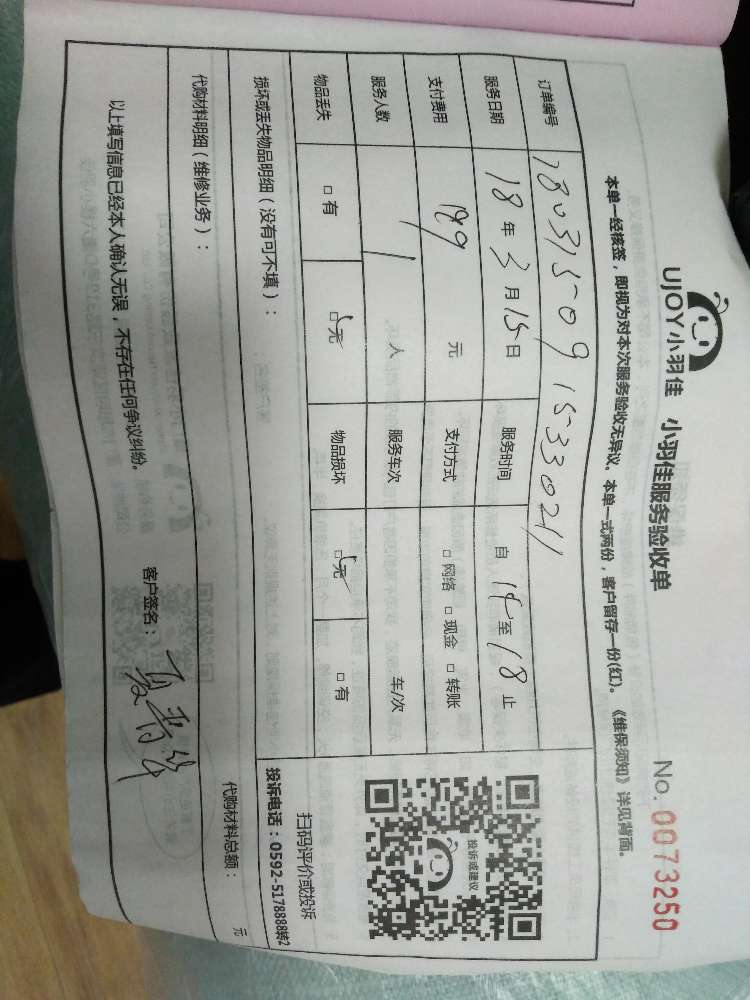 UJOY小羽佳 小羽佳服务验收单 No. 0073250
本单一经核签，即视为对本次服务验收无异议。本单一式两份，客户留存一份(红)。《维保须知》详见背面。
订单编号 180315091533021
服务日期 18年3月15日 服务时间 自14至18止
支付费用 元 支付方式 □网络 □现金 □转账
服务人数 1人 服务车次 车/次
物品丢失 □有 □无 物品损坏 □无 □有
投诉或建议
扫码评价或投诉
投诉电话：0592-5178888转2
损坏或丢失物品明细（没有可不填）：
代购材料明细（维修业务）： 代购材料总额： 元
以上填写信息已经本人确认无误，不存在任何争议纠纷。 客户签名：